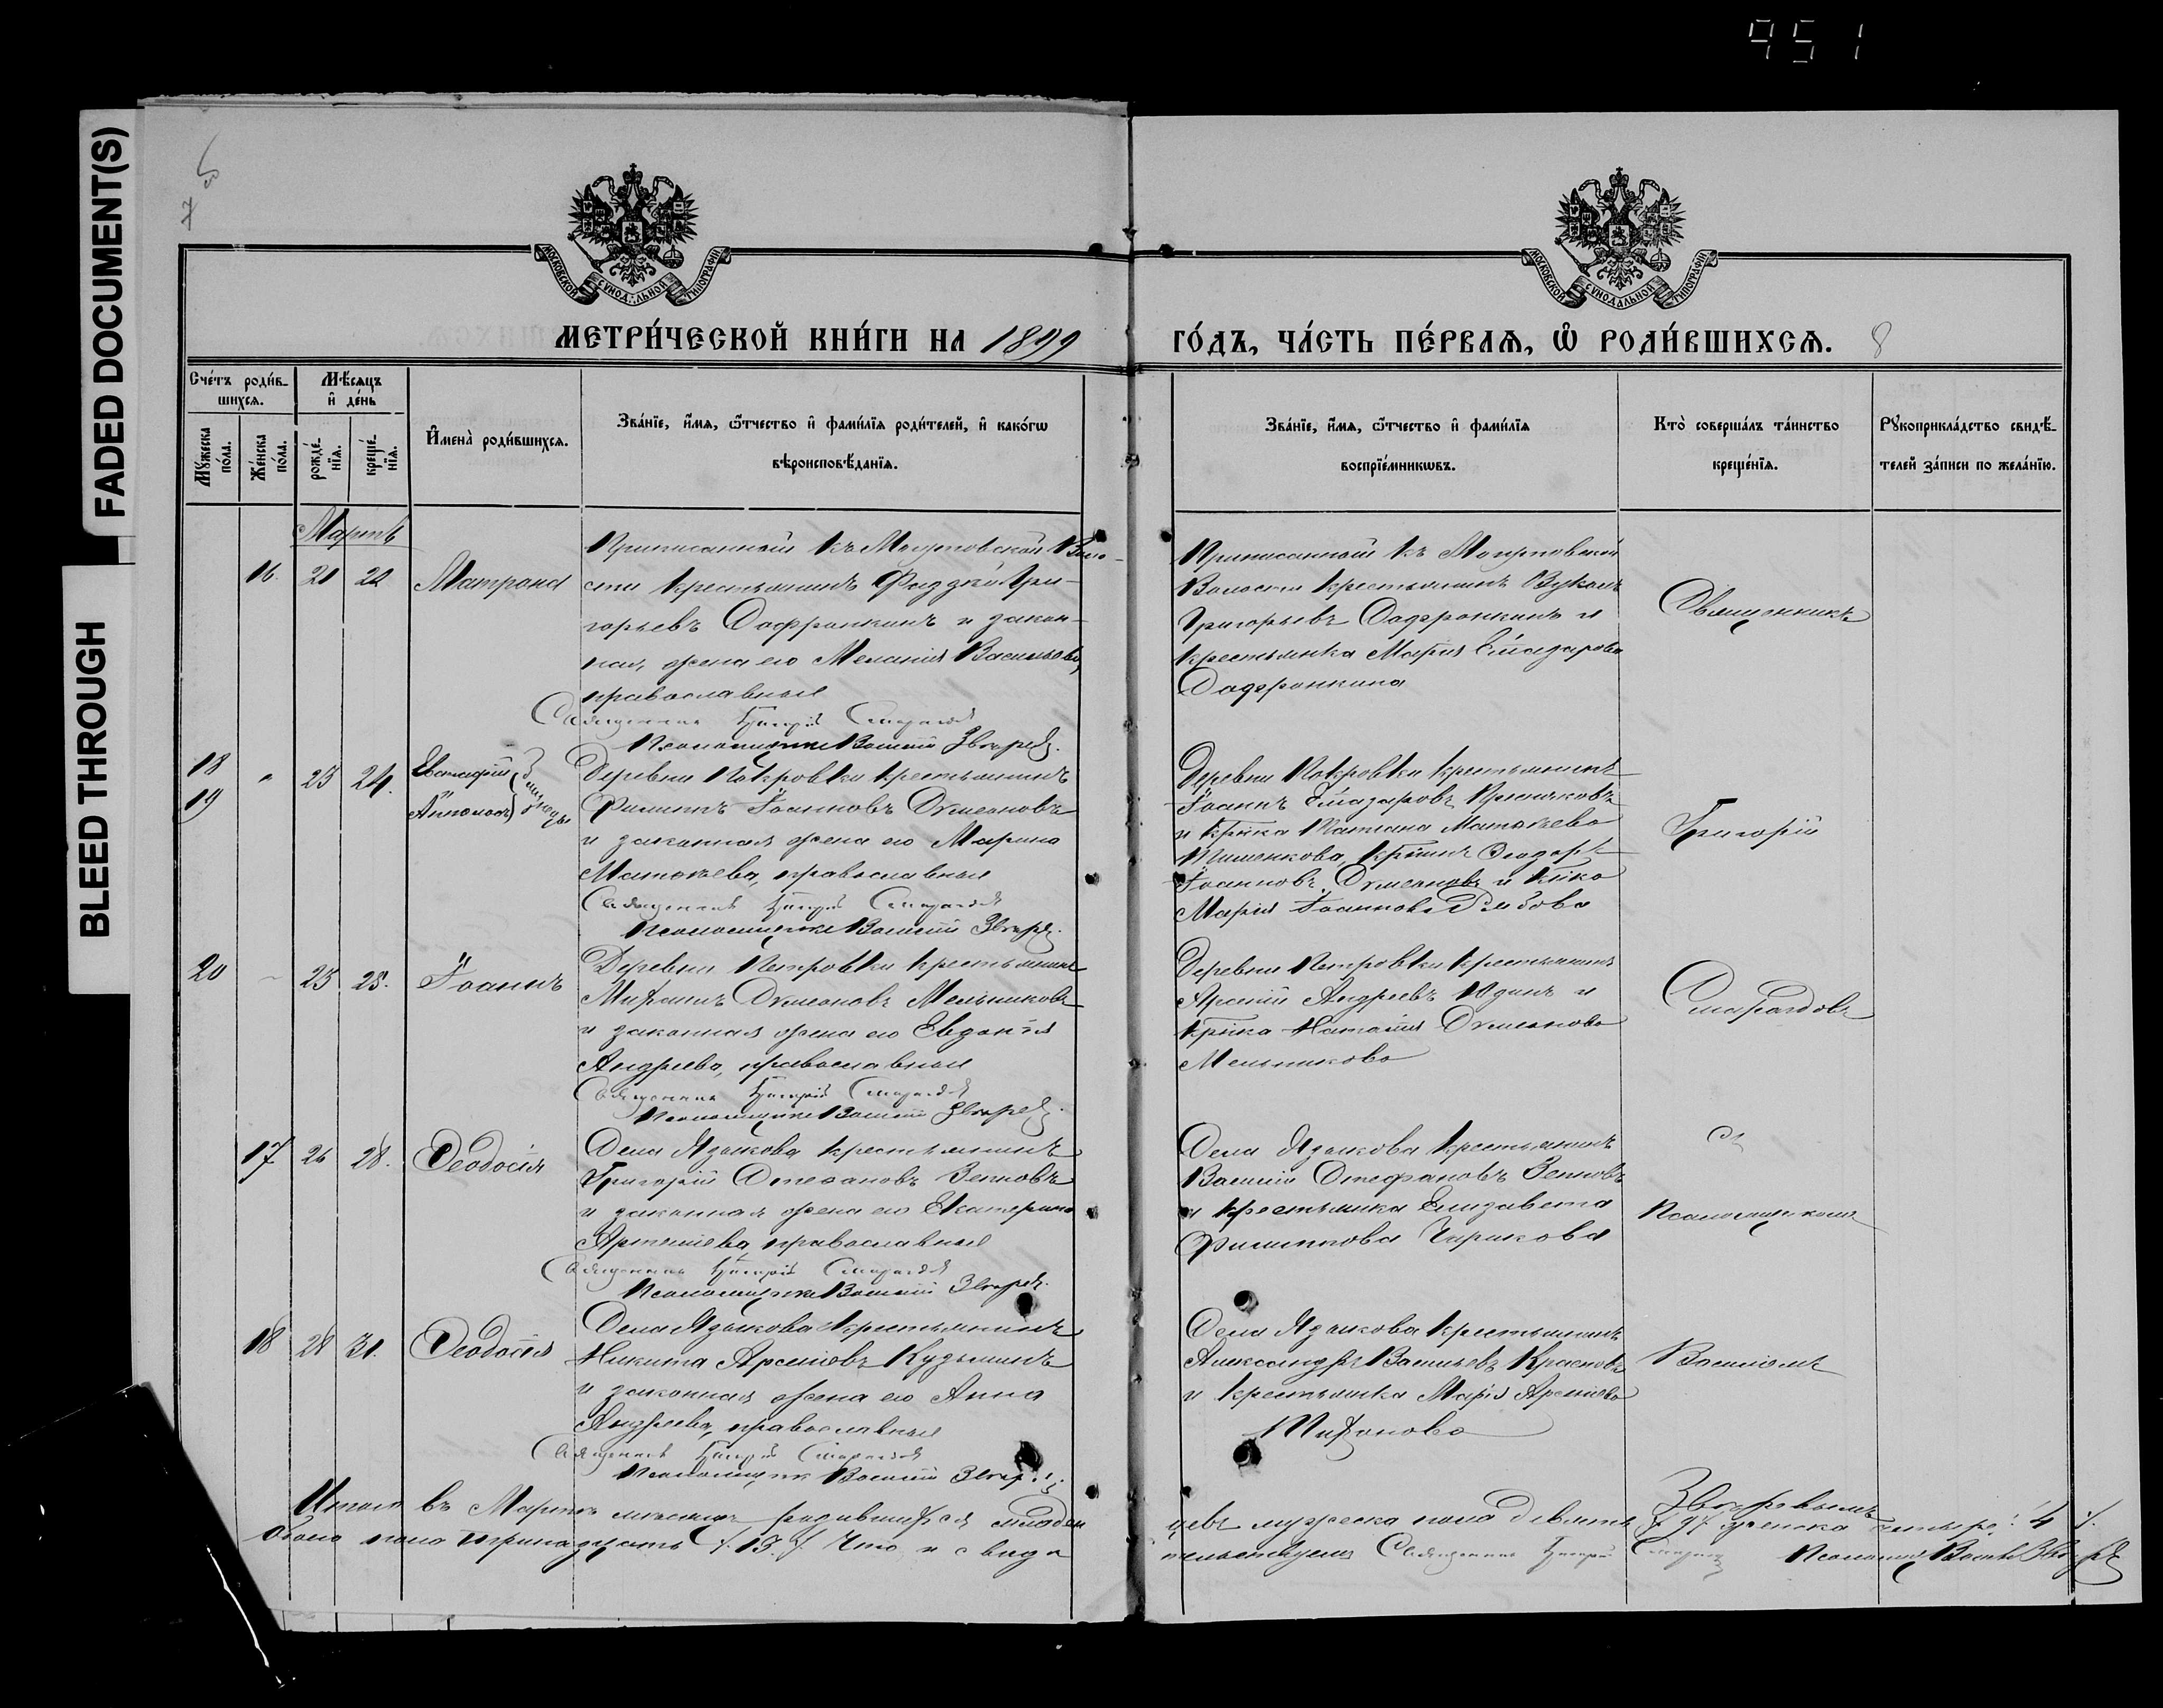 951
FADED DOCUMENT(S)
BLEED THROUGH
МОСКОВСКОЙ СУНОДАЛЬНОЙ ТИПОГРАФІИ
МОСКОВСКОЙ СУНОДАЛЬНОЙ ТИПОГРАФІИ
МЕТРИ́ЧЕСКОЙ КНИ́ГИ НА 1899
ГО́ДЪ, ЧА́СТЬ ПЕ́РВАѦ, Ѡ РОДИ́ВШИХСѦ. 8
Сче́тъ роди́в-
шихсѧ.
Мѣ́сѧцъ
и҆ де́нь
Мꙋ́жеска
по́ла.
Же́нска
по́ла.
рожде́-
нїѧ.
креще́-
нїѧ.
И҆мена̀ роди́вшихсѧ.
Зва́нїе, и҆́мѧ, ѻ҆́тчество и҆ фами́лїѧ роди́телей, и҆ како́гѡ
вѣроисповѣ́данїѧ.
Зва́нїе, и҆́мѧ, ѻ҆́тчество и҆ фами́лїѧ
воспрїе́мникѡвъ.
Кто̀ соверша́лъ та́инство
креще́нїѧ.
Рꙋкоприкла́дство свидѣ́-
телей за́писи по жела́нїю.
Мартъ
16. 21 22 Матрона
Приписанный къ Воло-
сти крестьянинъ Гри-
горьевъ Сафронкинъ и закон-
ная жена его Меланія Васильева,
православныя
Священникъ Григорій Смарагдовъ
Псаломщикъ Василій Звѣревъ.
Приписанный къ
Волости крестьянинъ Вуколъ
Григорьевъ Сафронкинъ и
крестьянка Марія Елиазарова
Сафронкина
Священникъ
18
19
" 23 24. Евстафій
Антоній близнецы
Деревни Покровки крестьянинъ
Филиппъ Іоанновъ Симеоновъ
и законная жена его Марина
Матвѣева, православныя
Священникъ Григорій Смарагдовъ
Псаломщикъ Василій Звѣревъ.
Деревни Покровки крестьянинъ
Іоаннъ Елиазаровъ
и кр҃нка Татіана Матвѣева
кр҃нинъ Ѳеодоръ
Іоанновъ Симеоновъ и
Марія Іоаннова
Григорій
20 – 25 28. Іоаннъ
Деревни Петровки крестьянинъ
Миронъ Симеоновъ Мельниковъ
и законная жена его Евдокія
Андреева, православныя
Священникъ Григорій Смарагдовъ
Псаломщикъ Василій Звѣревъ.
Деревни Петровки крестьянинъ
Арсеній Андреевъ Юдинъ и
кр҃нка Наталія Симеонова
Мельникова
Смарагдовъ
17 26 28. Ѳеодосія
Села Языкова крестьянинъ
Григорій Стефановъ Зенковъ
и законная жена его Екатерина
Артемьева, православныя
Священникъ Григорій Смарагдовъ
Псаломщикъ Василій Звѣревъ.
Села Языкова крестьянинъ
Василій Стефановъ Зенковъ
и крестьянка Елизавета
Филиппова Чирикова
съ
Псаломщикомъ
18 28 31. Ѳеодосія
Села Языкова крестьянинъ
Никита Арсеніовъ Кузьминъ
и законная жена его Анна
Андреева, православныя
Священникъ Григорій Смарагдовъ
Псаломщикъ Василій Звѣревъ.
Села Языкова крестьянинъ
Александръ Васильевъ Красновъ
и крестьянка Марія Арсеніева
Тихонова
Василіемъ
Звѣревымъ
Итого въ Мартѣ мѣсяцѣ родившихся младен
цевъ мужеска пола девять /9/ женска четыре /4/.
Обоего пола тринадцать /.13./ Что и свидѣ
тельствуемъ Священникъ Григорій Смарагдовъ Псаломщ. Василій Звѣревъ